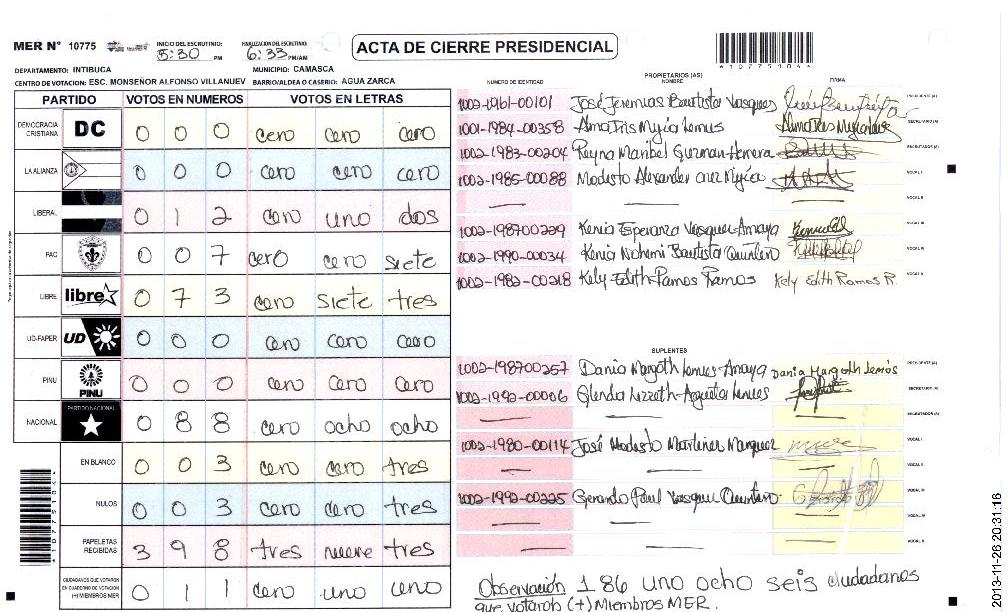 MER N° 10775 INICIO DEL ESCRUTINIO: 5:30 PM FINALIZACION DEL ESCRUTINIO: 6:33 PM/AM
ACTA DE CIERRE PRESIDENCIAL
DEPARTAMENTO: INTIBUCA MUNICIPIO: CAMASCA
CENTRO DE VOTACION: ESC. MONSEÑOR ALFONSO VILLANUEV BARRIO/ALDEA O CASERIO: AGUA ZARCA
PARTIDO VOTOS EN NUMEROS VOTOS EN LETRAS
DEMOCRACIA CRISTIANA DC 0 0 0 cero cero cero
LA ALIANZA 0 0 0 cero cero cero
LIBERAL 0 1 2 cero uno dos
PAC 0 0 7 cero cero siete
LIBRE libre 0 7 3 cero siete tres
UD-FAPER UD 0 0 0 cero cero cero
PINU PINU 0 0 0 cero cero cero
NACIONAL PARTIDO NACIONAL 0 8 8 cero ocho ocho
EN BLANCO 0 0 3 cero cero tres
NULOS 0 0 3 cero cero tres
PAPELETAS RECIBIDAS 3 9 8 tres nueve tres
CIUDADANOS QUE VOTARON EN CUADERNO DE VOTACION (+) MIEMBROS MER 0 1 1 cero uno uno
4107751044
NUMERO DE IDENTIDAD PROPIETARIOS (AS) NOMBRE FIRMA
1002-1961-00101 José Jeremias Bautista Vasquez PRESIDENTE (A)
1001-1984-00358 Alma Iris Mejia Lemus SECRETARIO (A)
1002-1983-00204 Reyna Maribel Guzman Herrera ESCRUTADOR (A)
1002-1985-00088 Modesto Alexander VOCAL I
VOCAL II
1002-198700229 Kenia Esperanza Vasquez Amaya VOCAL III
1002-1990-00034 Kenia Nohemi Bautista Quintero VOCAL IV
1002-1982-00218 Kely Edith Ramos Ramos Kely Edith Ramos R. VOCAL V
SUPLENTES
1002-198700257 Dania Margoth Lemus Amaya Dania Margoth Lemos PRESIDENTE (A)
1002-1990-00006 Glenda Lizzeth Lemus SECRETARIO (A)
ESCRUTADOR (A)
1002-1980-00114 José Modesto Martinez Marquez VOCAL I
VOCAL II
1002-1992-00225 Gerardo Paul Vasquez Quintero VOCAL III
VOCAL IV
VOCAL V
Observación 186 uno ocho seis ciudadanos
que votarob (+) Miembros MER.
2013-11-26 20:31:16